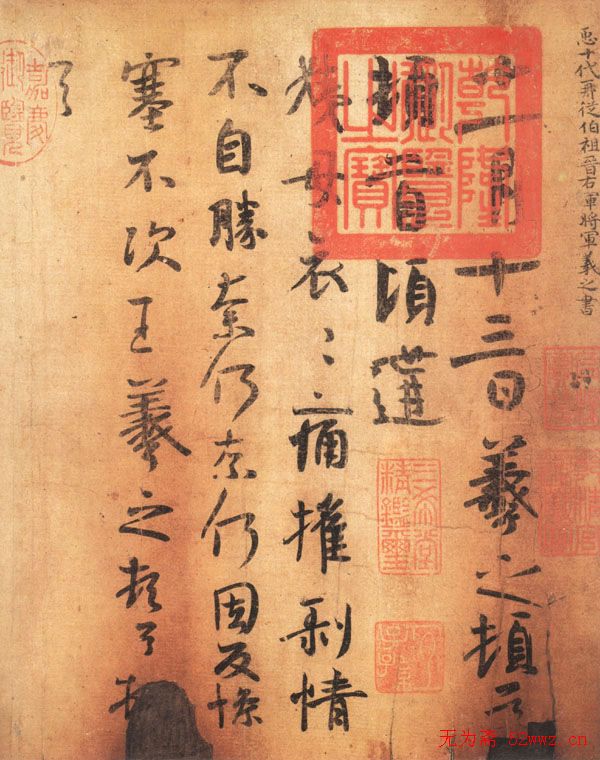 𢘑十代再從伯祖晉右軍將軍羲之書
十一月十三日羲之頓首
頓首頃遘
姨母哀哀痛摧剝情
不自勝奈何奈何因反慘
塞不次王羲之頓首頓
首
乾隆御覽之寶
嘉慶御覽
三希堂精鑑璽
无为斋 52wwz.cn